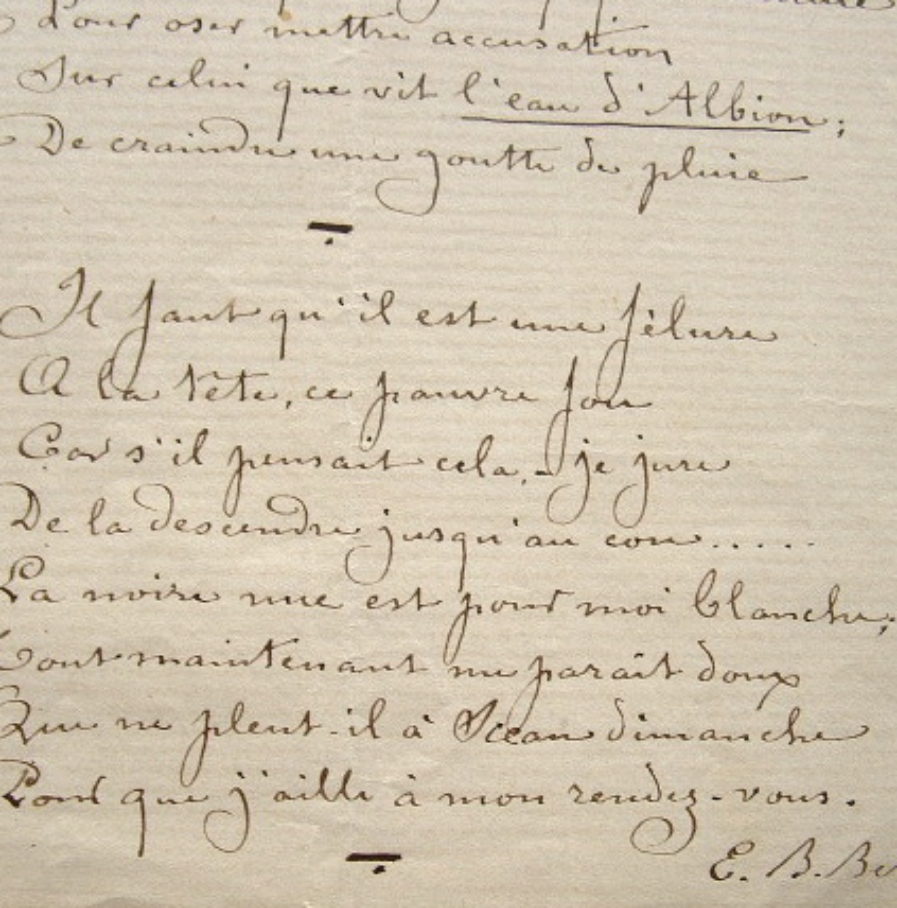 Pour oser mettre accusation
Sur celui que vit l'eau d'Albion;
De craindre une goutte de pluie
Il faut qu'il est une fêlure
A la tête, ce pauvre fou
Car s'il pensait cela, - je jure
De la descendre jusqu'au cou.....
La noire nue est pour moi blanche;
Tout maintenant me parait doux
Que ne pleut-il à Sceau dimanche
Pour que j'aille à mon rendez-vous.
E. B. Be